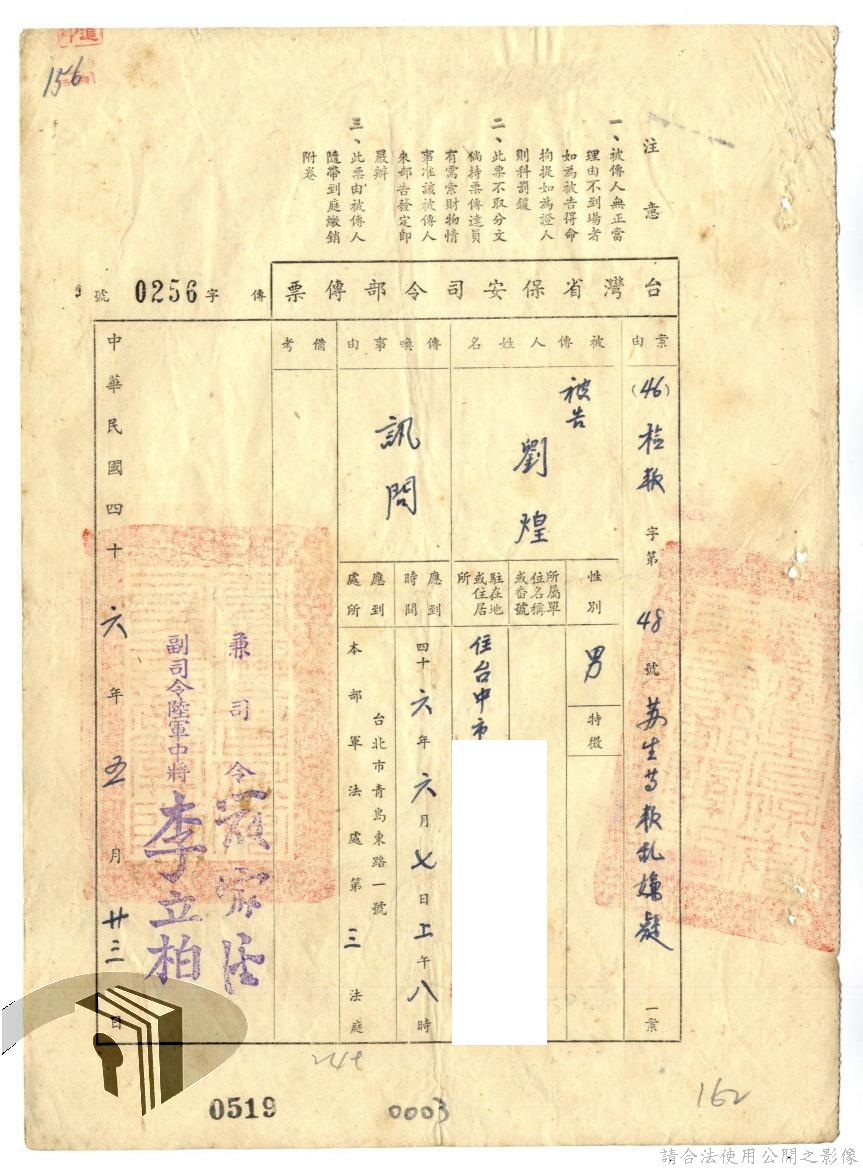 156
注意
一、被傳人無正當
理由不到場者
如為被告得命
拘提如為證人
則科罰鍰
二、此票不取分文
倘持票傳達員
有需索財物情
事准該被傳人
來部告發定即
嚴辦
三、此票由被傳人
隨帶到庭繳銷
附卷
台灣省保安司令部傳票
傳字0256號
案由
(46)檢叛字第48號苏生等叛乱嫌疑一案
被傳人姓名
被告
劉煌
性別
男
特徵
所屬單
位名稱
或番號
駐在地
或住居
所
住台中市
傳喚事由
訊問
應到
時間
四十六年六月七日上午八時
應到
處所
台北市青島東路一號
本部軍法處第三法庭
備考
兼司令
副司令陸軍中將李立柏
中華民國四十六年五月廿三日
244
0519
0003
162
請合法使用公開之影像